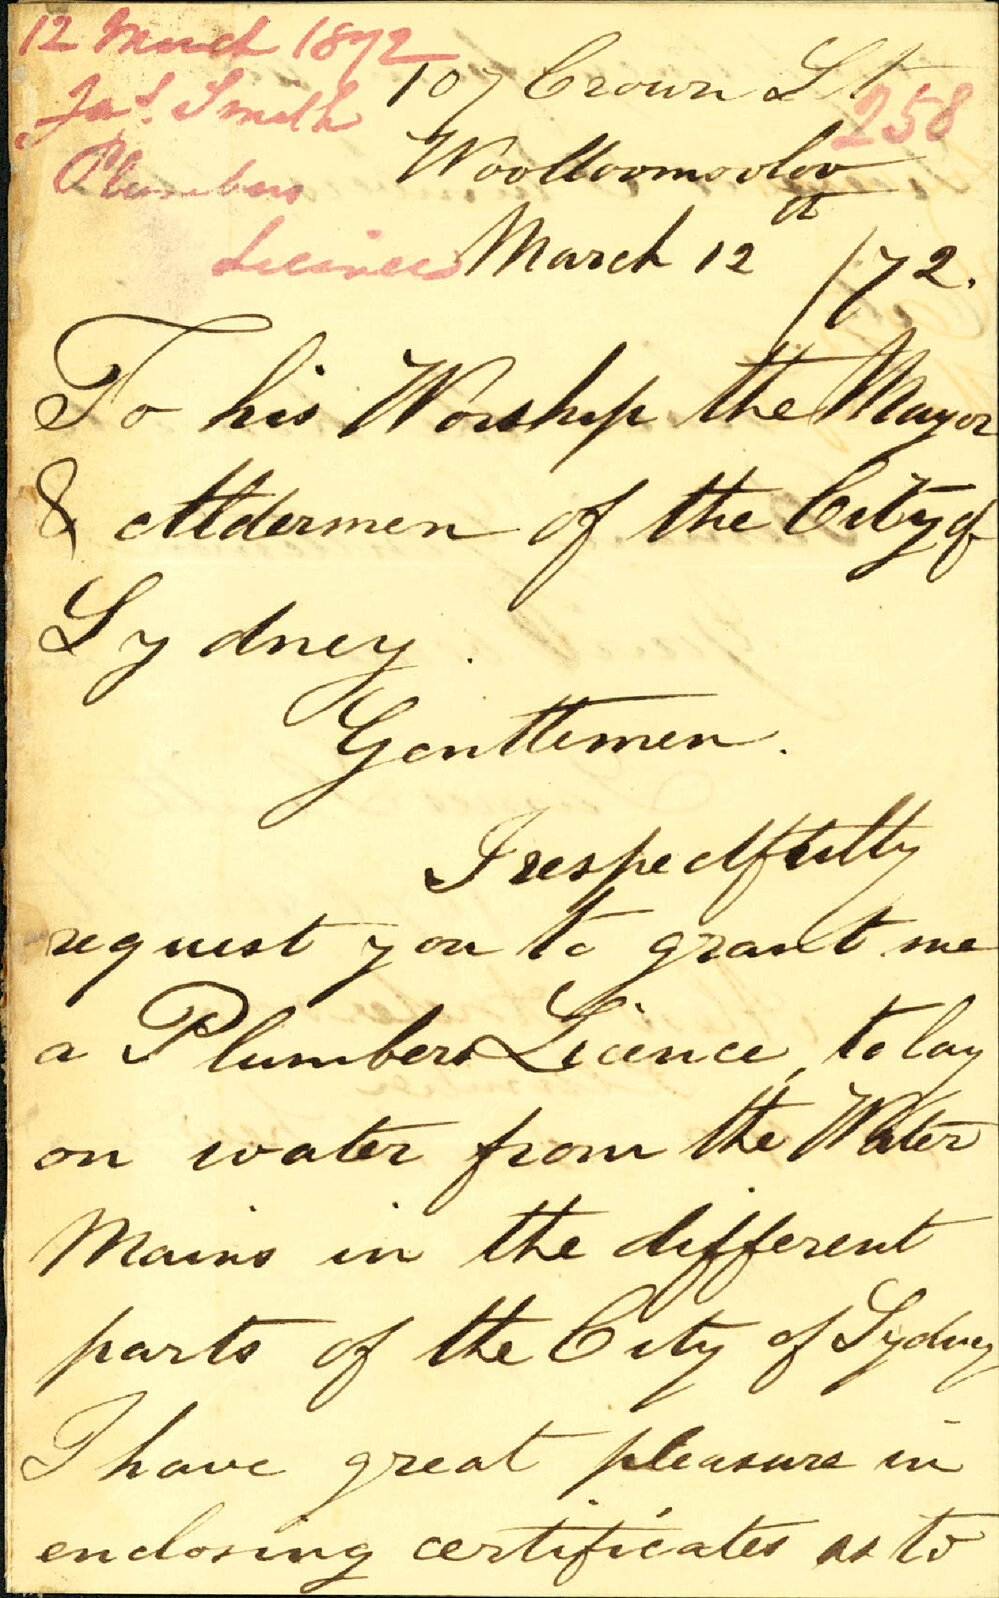 12 March 1872
Jas. Smith
Plumbers
Licences
258
107 Crown St
Woolloomooloo
March 12th /72.
To his Worship the Mayor
& Aldermen of the City of
Sydney.
Gentlemen.
I respectfully
request you to grant me
a Plumbers Licence, to lay
on water from the Water
Mains in the different
parts of the City of Sydney
I have great pleasure in
enclosing certificates as to